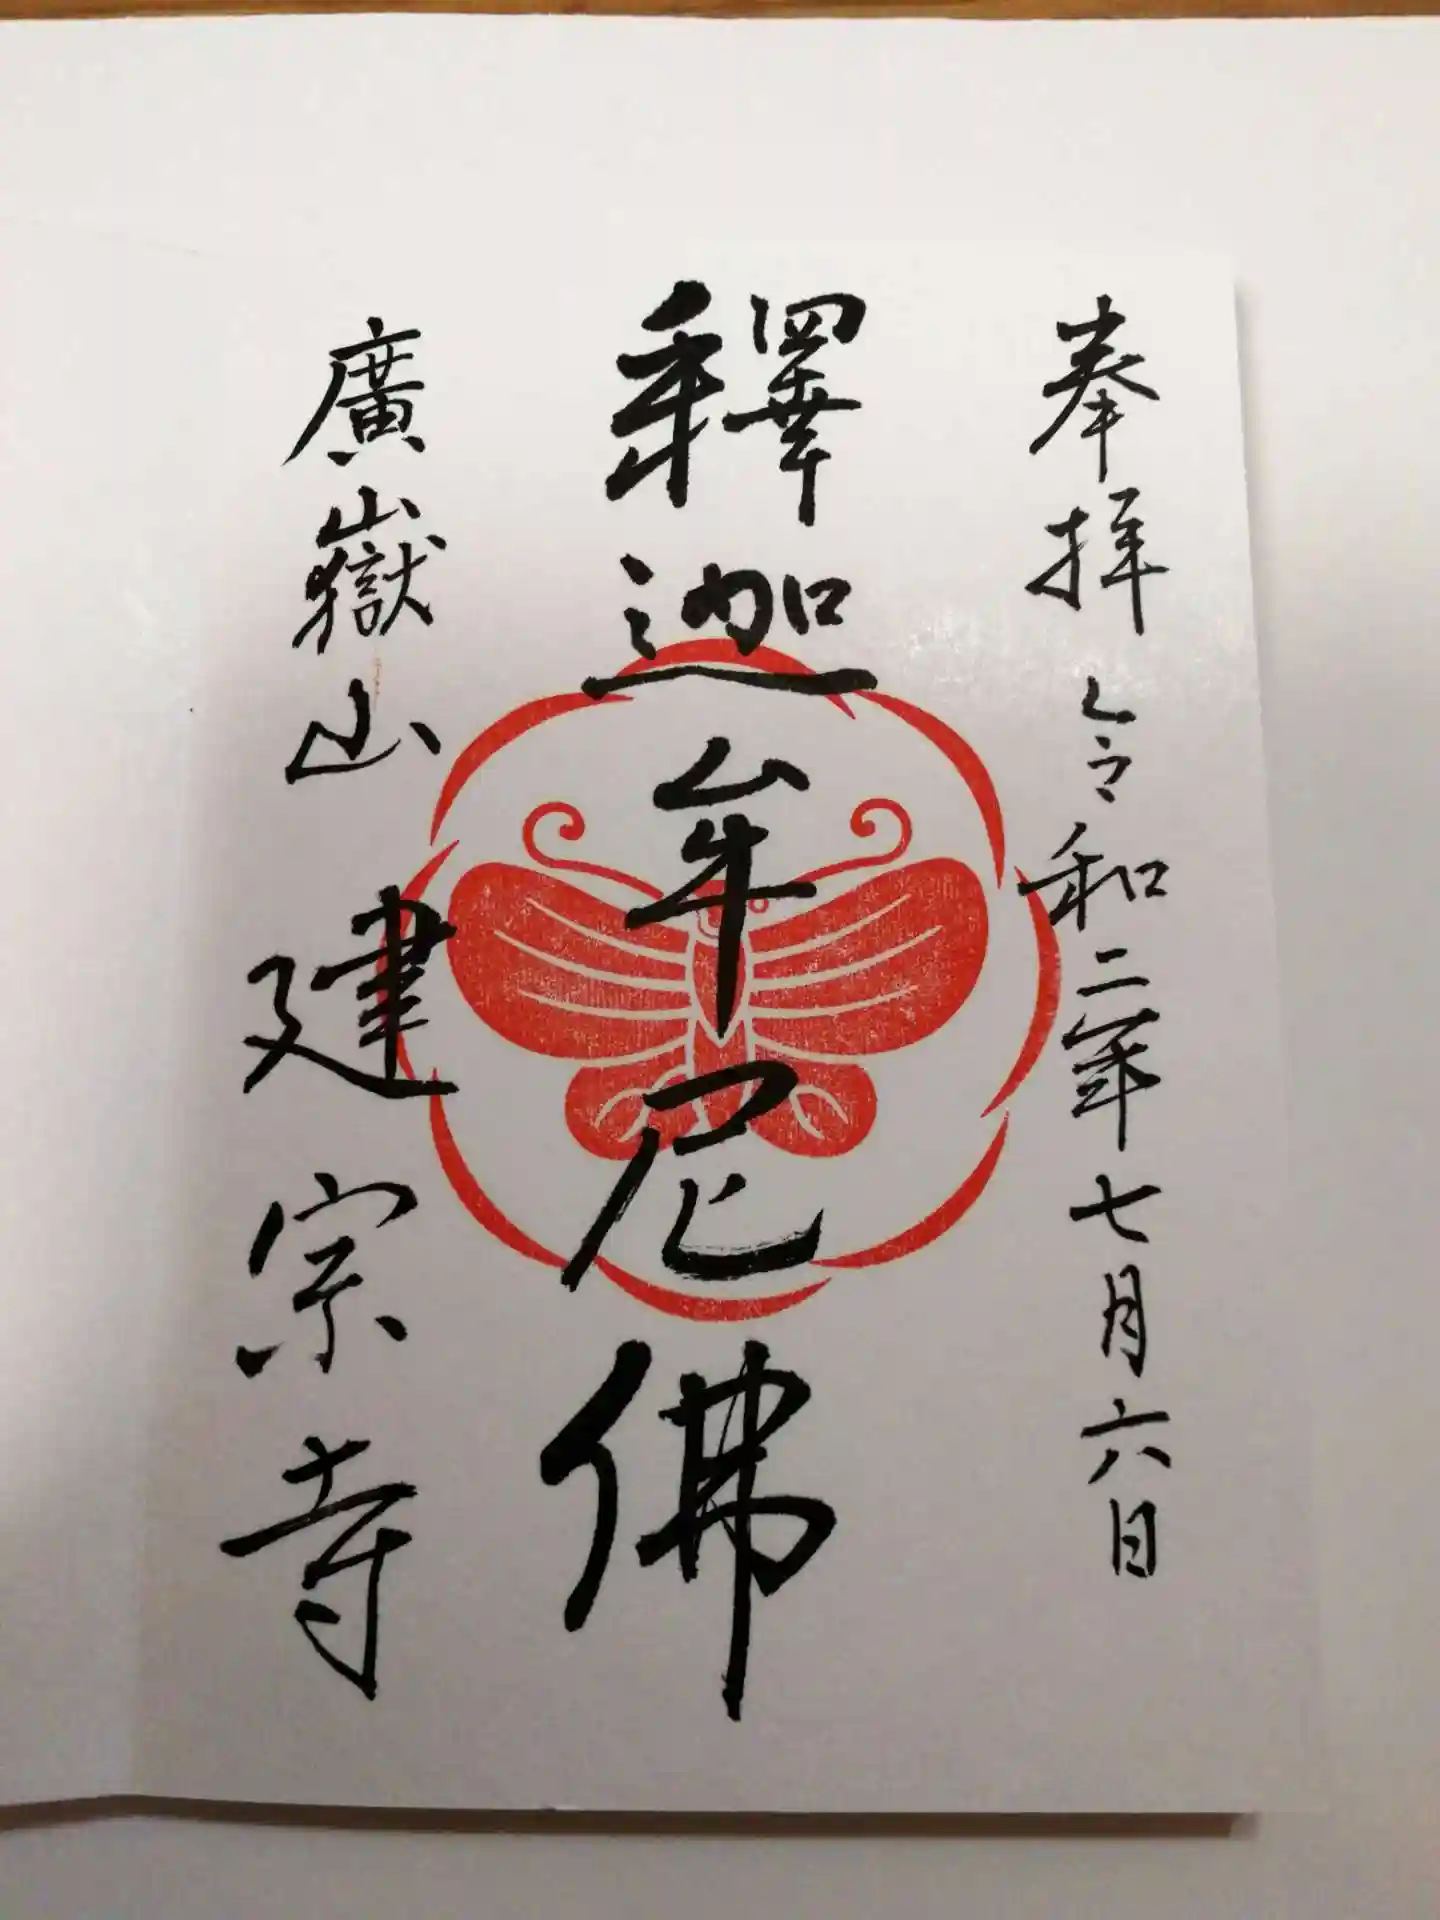 奉拝 令和二年七月六日
釋迦牟尼佛
廣嶽山 建宗寺